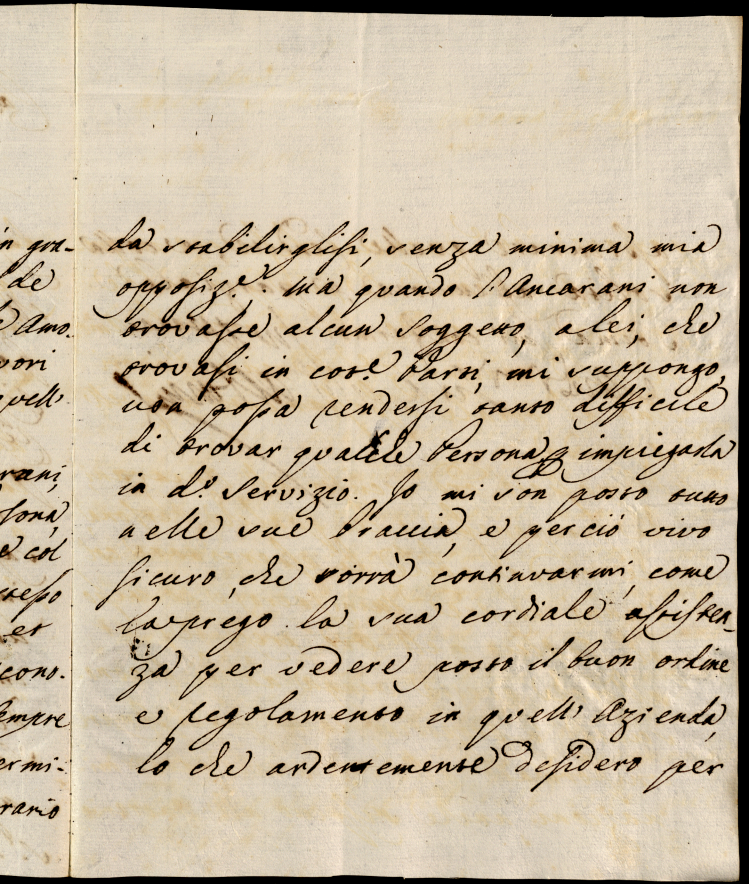 in gra-
de
e Amo.
vori
quell'
rani,
sona,
e col
stesso
et
cono.
sempre
ermi-
rario
da stabilirglisi, senza minima mia
opposiz.e. Ma quando l'Ancarani non
trovasse alcun soggetto, a lei, che
trovasi in cot.e Parti, mi suppongo,
non possa rendersi tanto difficile
di trovar qualche Persona p impiegarla
in d.o Servizio. Io mi son posto tutto
nelle sue braccia, e perciò vivo
sicuro, che vorrà continuarmi, come
la prego la sua cordiale assisten-
za per vedere posto il buon ordine
e regolamento in quell'Azienda,
lo che ardentemente desidero per